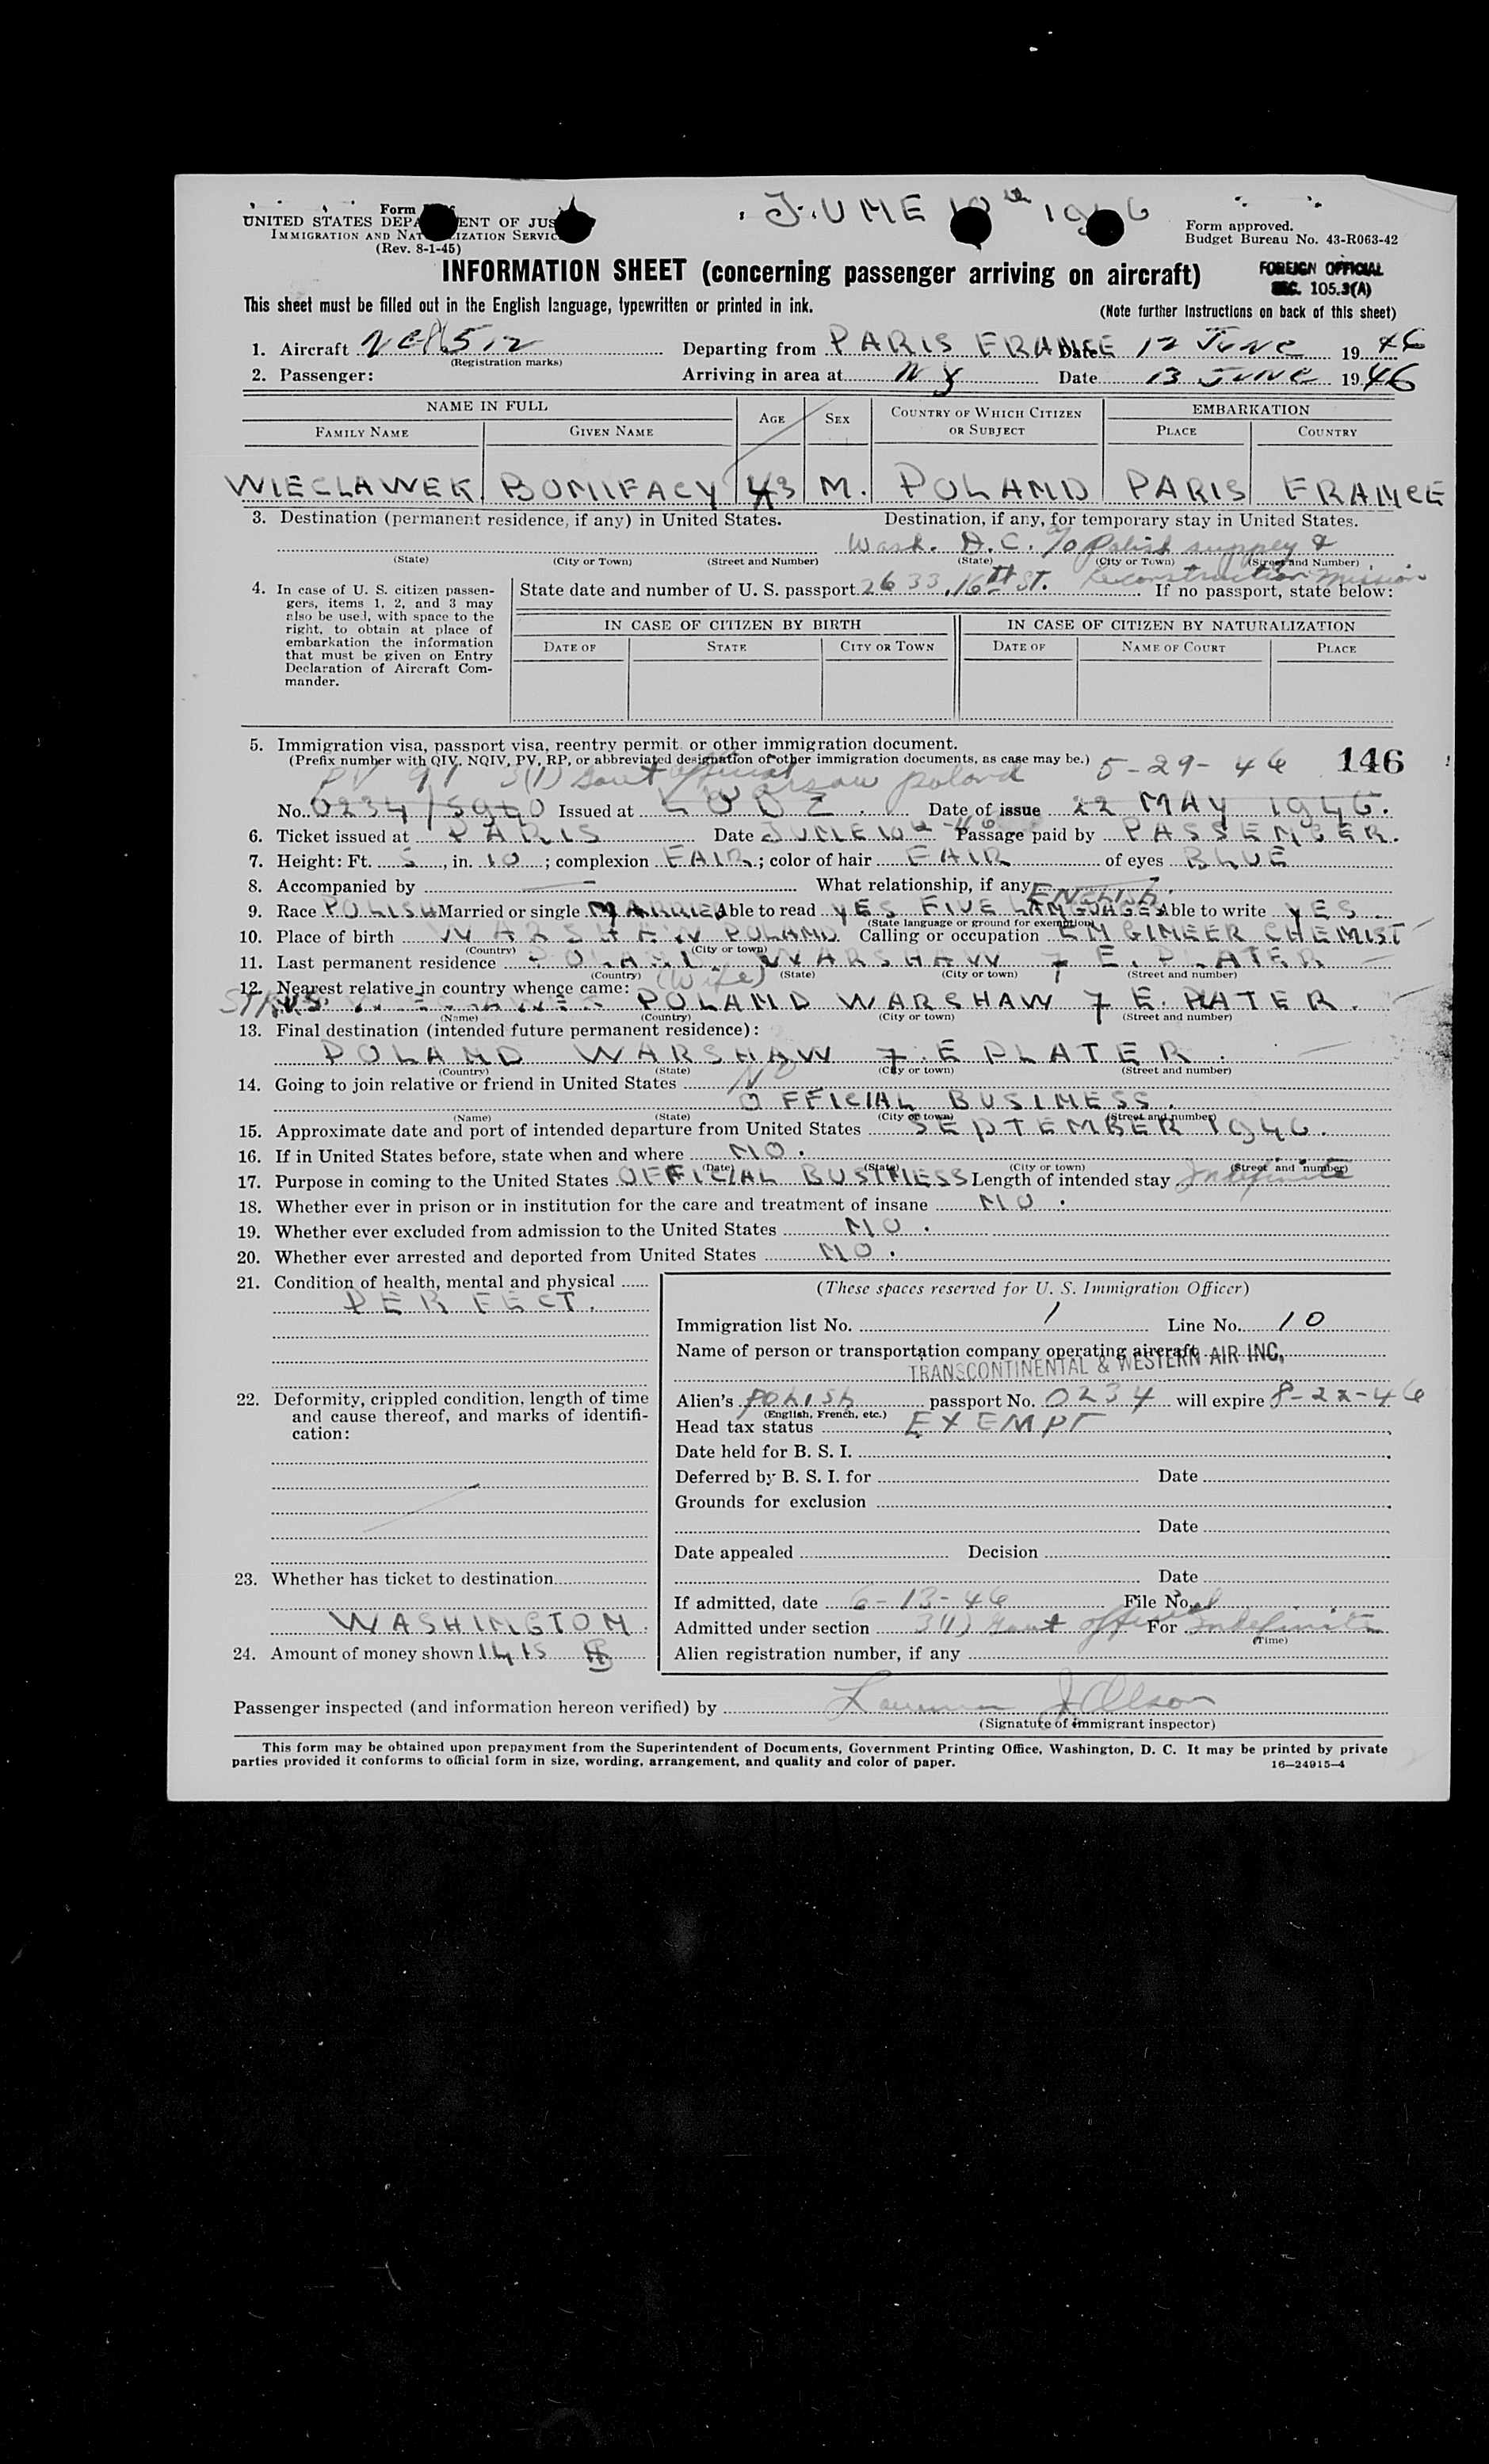 JUNE 10th 1946
Form
UNITED STATES DEPA ENT OF JUS
IMMIGRATION AND NAT IZATION SERVIC
(Rev. 8-1-45)
Form approved.
Budget Bureau No. 43-R063-42
INFORMATION SHEET (concerning passenger arriving on aircraft)
FOREIGN OFFICIAL
SEC. 105.3(A)
This sheet must be filled out in the English language, typewritten or printed in ink.
(Note further Instructions on back of this sheet)
1. Aircraft Departing from PARIS FRANCE Date 12 June 1946
(Registration marks)
2. Passenger: Arriving in area at N Y Date 13 June 1946
NAME IN FULL AGE SEX COUNTRY OF WHICH CITIZEN OR SUBJECT EMBARKATION
FAMILY NAME GIVEN NAME PLACE COUNTRY
WIECLAWEK BONIFACY 43 M. POLAND PARIS FRANCE
3. Destination (permanent residence, if any) in United States. Destination, if any, for temporary stay in United States.
Wash. D.C. c/o Polish supply &
(State) (City or Town) (Street and Number) (State) (City or Town) (Street and Number)
Reconstruction Mission
4. In case of U. S. citizen passengers, items 1, 2, and 3 may also be used, with space to the right, to obtain at place of embarkation the information that must be given on Entry Declaration of Aircraft Commander.
State date and number of U. S. passport 2633, 16th ST. If no passport, state below:
IN CASE OF CITIZEN BY BIRTH IN CASE OF CITIZEN BY NATURALIZATION
DATE OF STATE CITY OR TOWN DATE OF NAME OF COURT PLACE
5. Immigration visa, passport visa, reentry permit or other immigration document.
(Prefix number with QIV, NQIV, PV, RP, or abbreviated designation of other immigration documents, as case may be.)
PV 91 3(1) Govt official Warsaw Poland 5-29-46 146
No. 0234/5940 Issued at LODZ. Date of issue 22 MAY 1946.
6. Ticket issued at PARIS Date JUNE 10th -46 Passage paid by PASSENGER.
7. Height: Ft. 5, in. 10; complexion FAIR; color of hair FAIR of eyes BLUE
8. Accompanied by — What relationship, if any
ENGLISH.
9. Race POLISH Married or single MARRIED Able to read YES FIVE LANGUAGES Able to write YES
(State language or ground for exemption)
10. Place of birth WARSHAW POLAND Calling or occupation ENGINEER CHEMIST
(Country) (City or town)
11. Last permanent residence POLAND WARSHAW 7 E. PLATER
(Country) (State) (City or town) (Street and number)
12. Nearest relative in country whence came: (Wife)
POLAND WARSHAW 7 E. PLATER.
(Name) (Country) (City or town) (Street and number)
13. Final destination (intended future permanent residence):
POLAND WARSHAW 7. E PLATER.
(Country) (State) (City or town) (Street and number)
14. Going to join relative or friend in United States NO
OFFICIAL BUSINESS.
(Name) (State) (City or town) (Street and number)
15. Approximate date and port of intended departure from United States SEPTEMBER 1946.
16. If in United States before, state when and where NO.
(Date) (State) (City or town) (Street and number)
17. Purpose in coming to the United States OFFICIAL BUSINESS Length of intended stay Indefinite
18. Whether ever in prison or in institution for the care and treatment of insane NO.
19. Whether ever excluded from admission to the United States NO.
20. Whether ever arrested and deported from United States NO.
21. Condition of health, mental and physical
PERFECT.
22. Deformity, crippled condition, length of time and cause thereof, and marks of identification:
23. Whether has ticket to destination
WASHINGTON.
24. Amount of money shown
(These spaces reserved for U. S. Immigration Officer)
Immigration list No. 1 Line No. 10
Name of person or transportation company operating aircraft
TRANSCONTINENTAL & WESTERN AIR INC.
Alien's POLISH passport No. 0234 will expire 8-22-46
(English, French, etc.)
Head tax status EXEMPT
Date held for B. S. I.
Deferred by B. S. I. for Date
Grounds for exclusion
Date
Date appealed Decision
Date
If admitted, date 6-13-46 File No.
Admitted under section 3(1) Govt official For Indefinite
(Time)
Alien registration number, if any
Passenger inspected (and information hereon verified) by Olson
(Signature of immigrant inspector)
This form may be obtained upon prepayment from the Superintendent of Documents, Government Printing Office, Washington, D. C. It may be printed by private
parties provided it conforms to official form in size, wording, arrangement, and quality and color of paper.
16—24915-4